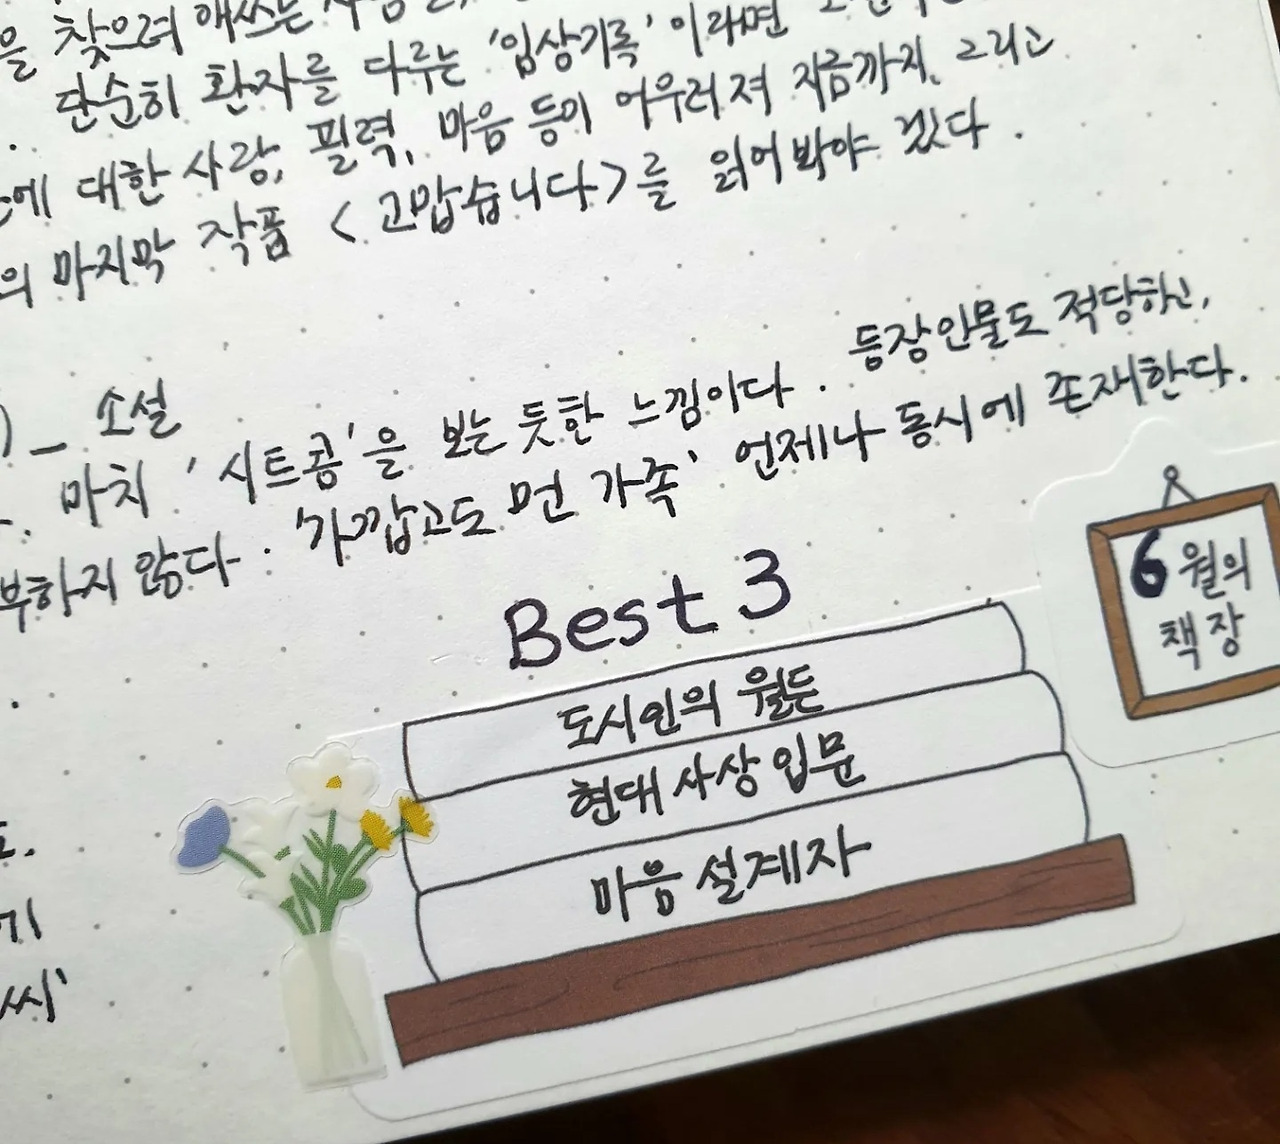 을 찾으려 애쓰는
단순히 환자를 다루는 '임상기록' 이라면
에 대한 사랑, 필력, 마음 등이 어우러져 지금까지. 그리고
의 마지막 작품 <고맙습니다>를 읽어봐야 겠다.
) - 소설
마치 '시트콤'을 보는 듯한 느낌이다. 등장인물도 적당하고,
부하지 않다. '가깝고도 먼 가족' 언제나 동시에 존재한다.
Best 3
도시인의 월든
현대 사상 입문
마음 설계자
6월의
책장
기
씨'